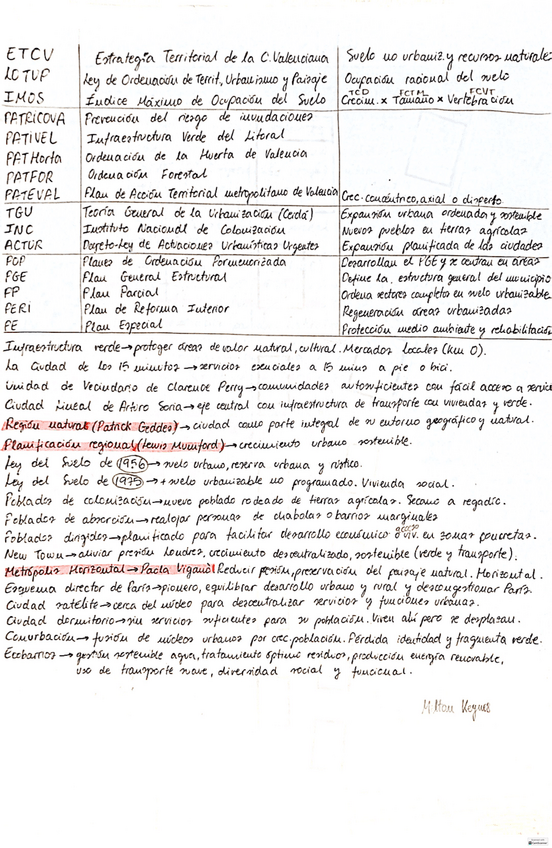 ETCV Estrategia Territorial de la C. Valenciana Suelo no urbaniz. y recursos naturales
LOTUP Ley de Ordenación de Territ, Urbanismo y Paisaje Ocupación racional del suelo
IMOS Índice Máximo de Ocupación del Suelo TCD FCTM FCVT Crecim. x Tamaño x Vertebración
PATRICOVA Prevención del riesgo de inundaciones
PATIVEL Infraestructura Verde del Litoral
PATHorta Ordenación de la Huerta de Valencia
PATFOR Ordenación Forestal
PATEVAL Plan de Acción Territorial metropolitano de Valencia Crec. concéntrico, axial o disperso
TGU Teoría General de la Urbanización (Cerdá) Expansión urbana ordenada y sostenible
INC Instituto Nacional de Colonización Nuevos pueblos en tierras agrícolas
ACTUR Decreto-Ley de Actuaciones Urbanísticas Urgentes Expansión planificada de las ciudades
POP Planes de Ordenación Pormenorizada Desarrollan el PGE y se centran en áreas
PGE Plan General Estructural Define la estructura general del municipio
PP Plan Parcial Ordena sectores completos en suelo urbanizable
PERI Plan de Reforma Interior Regeneración áreas urbanizadas
PE Plan Especial Protección medio ambiente y rehabilitación
Infraestructura verde → proteger áreas de valor natural, cultural. Mercados locales (Km 0).
La Ciudad de los 15 minutos → servicios esenciales a 15 mins a pie o bici.
Unidad de Vecindario de Clarence Perry → comunidades autosuficientes con fácil acceso a servicio
Ciudad Lineal de Arturo Soria → eje central con infraestructura de transporte con viviendas y verde.
Región natural (Patrick Geddes) → ciudad como parte integral de su entorno geográfico y natural.
Planificación regional (Lewis Mumford) → crecimiento urbano sostenible.
Ley del Suelo de 1956 → suelo urbano, reserva urbana y rústico.
Ley del Suelo de 1975 → + suelo urbanizable no programado. Vivienda social.
Poblados de colonización → nuevo poblado rodeado de tierras agrícolas. Secano a regadío.
Poblados de absorción → realojar personas de chabolas o barrios marginales
Poblados dirigidos → planificado para facilitar desarrollo económico o acceso viv. en zonas concretas.
New Town → aliviar presión Londres, crecimiento descentralizado, sostenible (verde y transporte).
Metrópolis Horizontal → Paola Viganò Reducir presión, preservación del paisaje natural. Horizontal.
Esquema director de París → pionero, equilibrar desarrollo urbano y rural y descongestionar París.
Ciudad satélite → cerca del núcleo para descentralizar servicios y funciones urbanas.
Ciudad dormitorio → sin servicios suficientes para su población. Viven allí pero se desplazan.
Conurbación → fusión de núcleos urbanos por crec. población. Pérdida identidad y fragmenta verde.
Ecobarrios → gestión sostenible agua, tratamiento óptimo residuos, producción energía renovable,
uso de transporte suave, diversidad social y funcional.